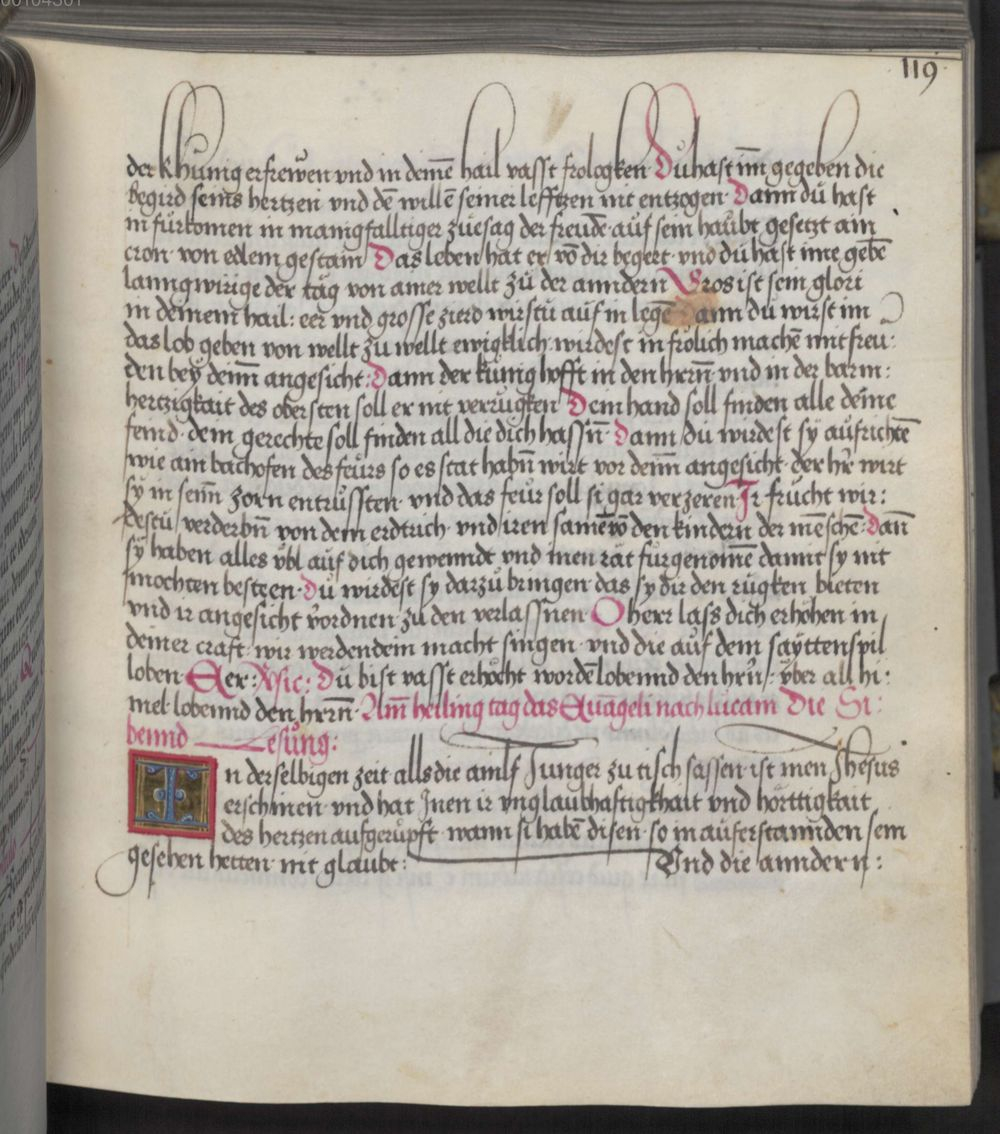 00104301
119
der Khünig erfrewen vnd in deinē hail vasst frologken Dů hast im̄ gegeben die
begird seins hertzen vnd dē willē seiner lefftzen nit entzogen· Dann dů hast
in fůrkomen in manigfalltiger zůesag der freude· auf sein haůbt gesetzt ain
cron· von edlem gestain Das leben hat er võ dir begert· vnd dů hast ime gebē
lanngwirige der täg von ainer wellt zů der anndern Gros ist sein glori
in deinem hail: eer vnd grosse zierd wirstu auf in legē Dann du wirst im
das lob geben von wellt zů wellt ewigklich wirdest in frölich machē mit freu:
den bey deinn̄ angesicht: Dann der künig hofft in den hrrn̄ vnd in der barm:
hertzigkait des obersten soll er nit verrugken Dein hand soll finden alle deine
feind· dein gerechte soll finden all die dich hassn̄· Dann du wirdest sy aufrichtē
wie ain bachofen des feůrs so es stat habn̄ wirt vor deinn̄ angesicht· der hr̄ wirt
sy in seinn̄ zorn entrůssten· vnd das feůr soll si gar verzeren Ir frůcht wir:
destu verderbn̄ von dem erdtrich· vnd iren samē võ den kindern der mēschē: Dan̄
sy haben alles v̊bl auf dich gewenndt vnd inen rät fürgenomē damit sy nit
mochten besteen· Dů wirdest sy darzů bringen das sy dir den růgken bieten
vnd ir angesicht v̊ordnen zů den verlassn̄en· O herr lass dich erhöhen in
deiner craft· wir werden dein macht singen· vnd die auf dem sayttenspil
loben· Eer: Vsic: Dů bist vasst erhöcht wordē lobennd den hrn̄: v̈ber all hi:
mel lobennd den hrrn̄· Am̄ heiling tag das Euāgeli nach lucam Die Si:
bennd Lesůng:
In derselbigen zeit alls die ainlf Junger zu tisch sassen ist inen Jhesus
erschinen· vnd hat Inen ir vnglaubhaftigkhait vnd hörttigkait
des hertzen aufgerůpft· wann si habē disen· so in aůferstannden sein
gesehen hetten· nit glaubt: Vnd die anndern: